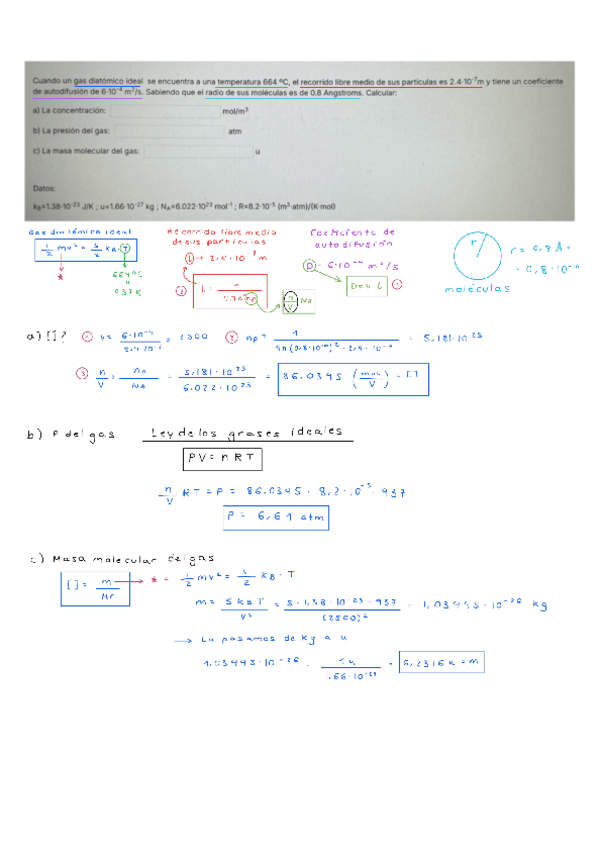 Cuando un gas diatómico ideal se encuentra a una temperatura 664 ºC, el recorrido libre medio de sus partículas es 2.4·10⁻⁷m y tiene un coeficiente
de autodifusión de 6·10⁻⁴ m²/s. Sabiendo que el radio de sus moléculas es de 0.8 Angstroms. Calcular:
a) La concentración: mol/m³
b) La presión del gas: atm
c) La masa molecular del gas: u
Datos:
k_B=1.38·10⁻²³ J/K ; u=1.66·10⁻²⁷ kg ; N_A=6.022·10²³ mol⁻¹ ; R=8.2·10⁻⁵ (m³·atm)/(K·mol)
Gas diatómico ideal
1/2 mv² = 5/2 k_B · T
*
664ºC
937K
Recorrido libre medio
de sus partículas
L → 2,4·10⁻⁷ m
②
n/V N_A
Coeficiente de
autodifusión
D → 6·10⁻⁴ m²/s
①
r
moléculas
r = 0,8 Å
= 0,8·10⁻¹⁰
a) [] ?
① ② = 5,181·10²⁵
③ n/V = = 5,181·10²⁵ / 6,022·10²³ = 86,0345 (mol/V) = []
b) P del gas
Ley de los gases ideales
PV = nRT
n/V RT = P = 86,0345 · 8,2·10⁻⁵ · 937
P = 6,61 atm
c) Masa molecular del gas
[] = m/Mr → * = 1/2 mv² = 5/2 k_B · T
m = 5 k_B T / v² = 5·1,38·10⁻²³·937 / (2500)² = 1,03445·10⁻²⁶ kg
→ La pasamos de kg a u
1,03445·10⁻²⁶ · = 6,2316 u = m